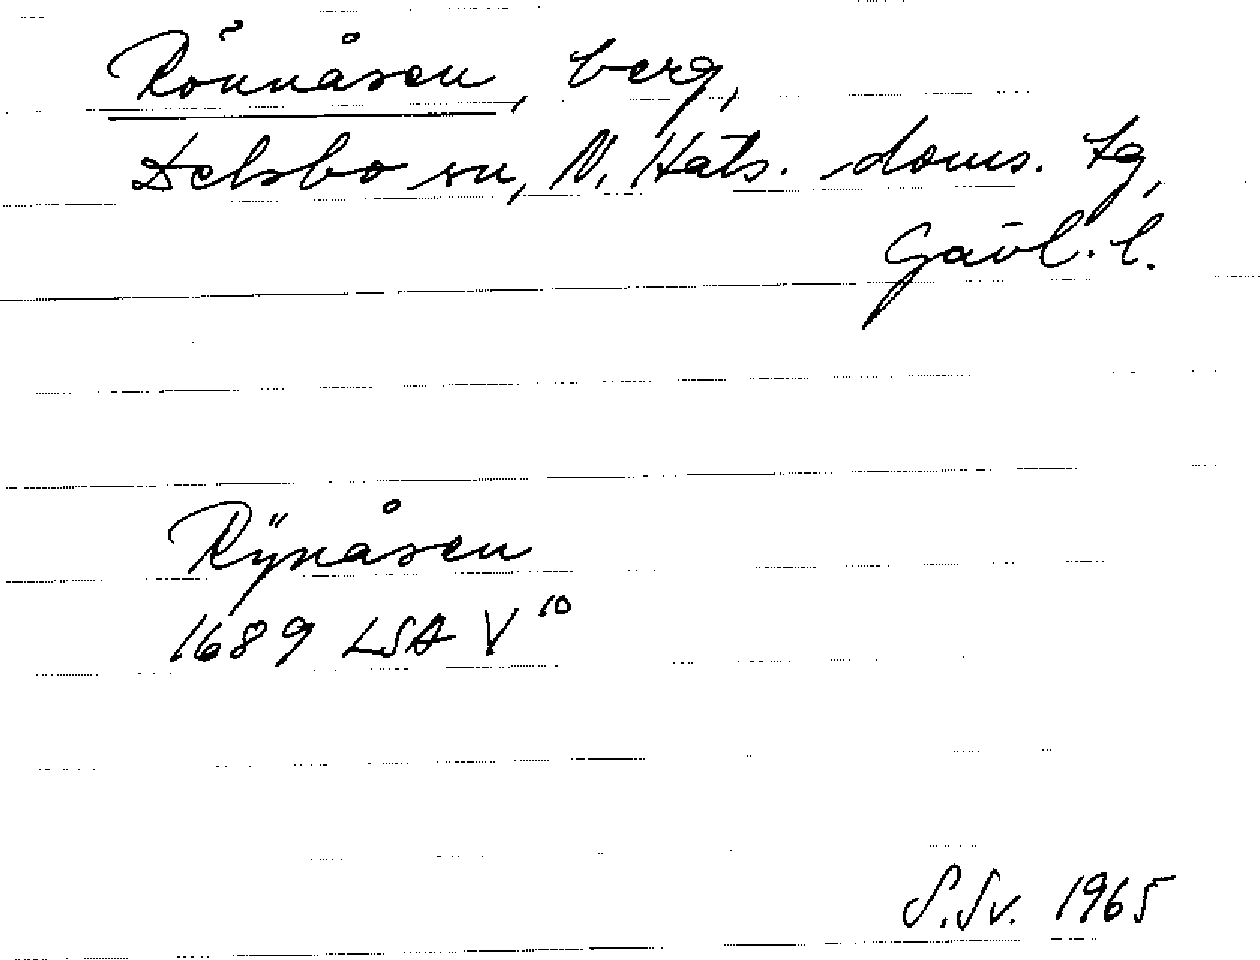 Rönnåsen, berg,
Delsbo sn, N. Häls. doms. tg,
Gävl. l.
Rÿnåsen
1689 LSA V¹⁰
S.Sv. 1965